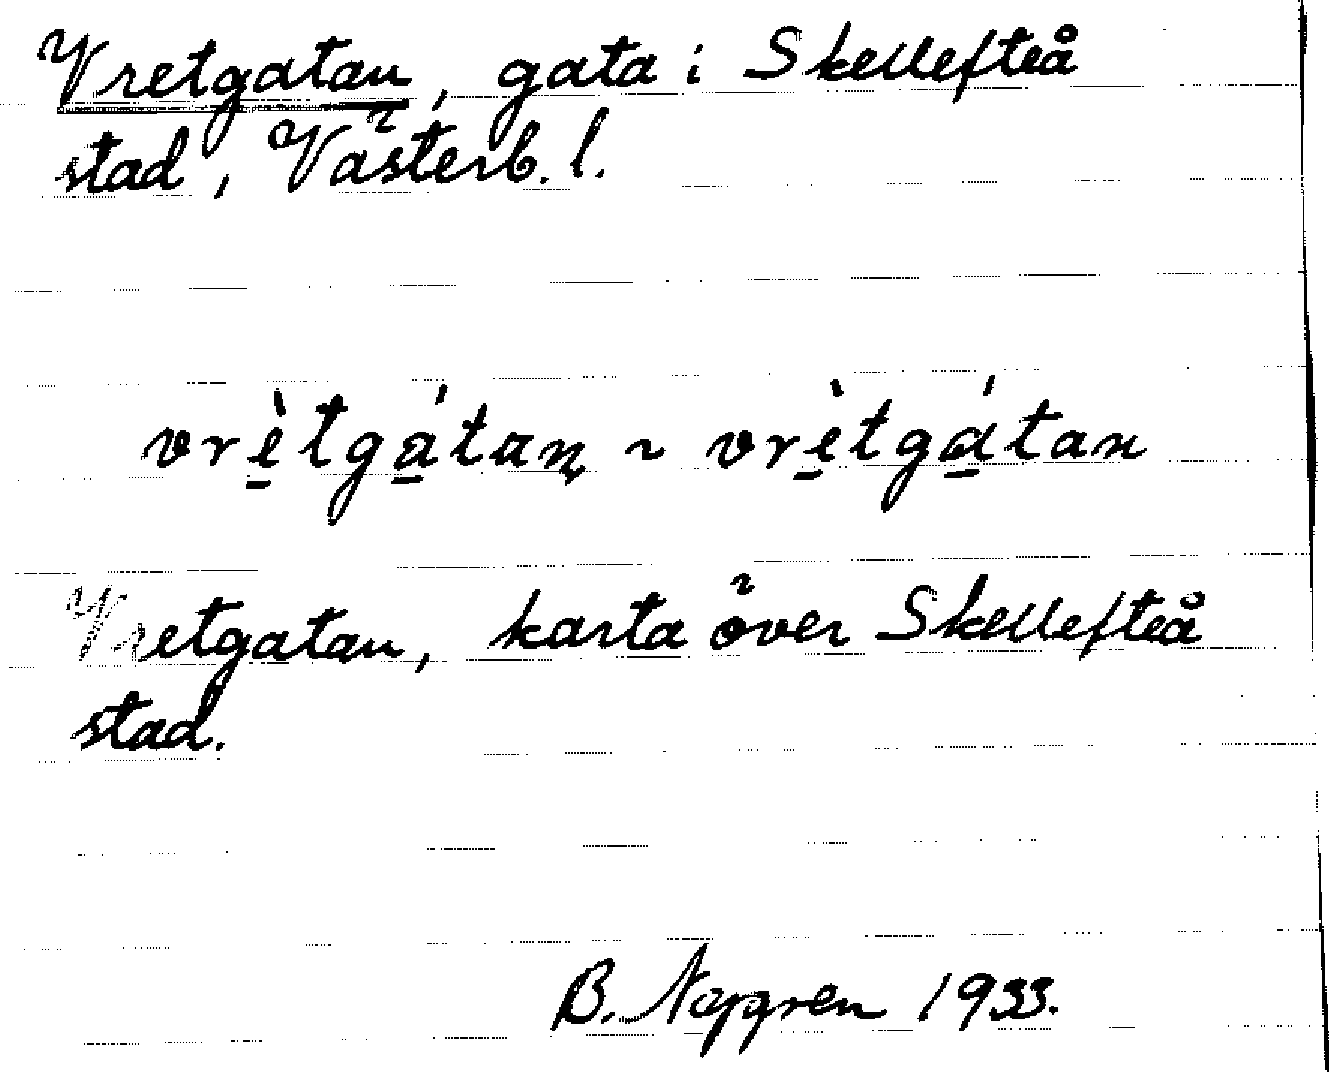 Vretgatan, gata i Skellefteå
stad, Västerb. l.
vrè̱tgá̱taṉ ~ vrè̱tgá̱tan
Vretgatan, karta över Skellefteå
stad.
B. 1933.